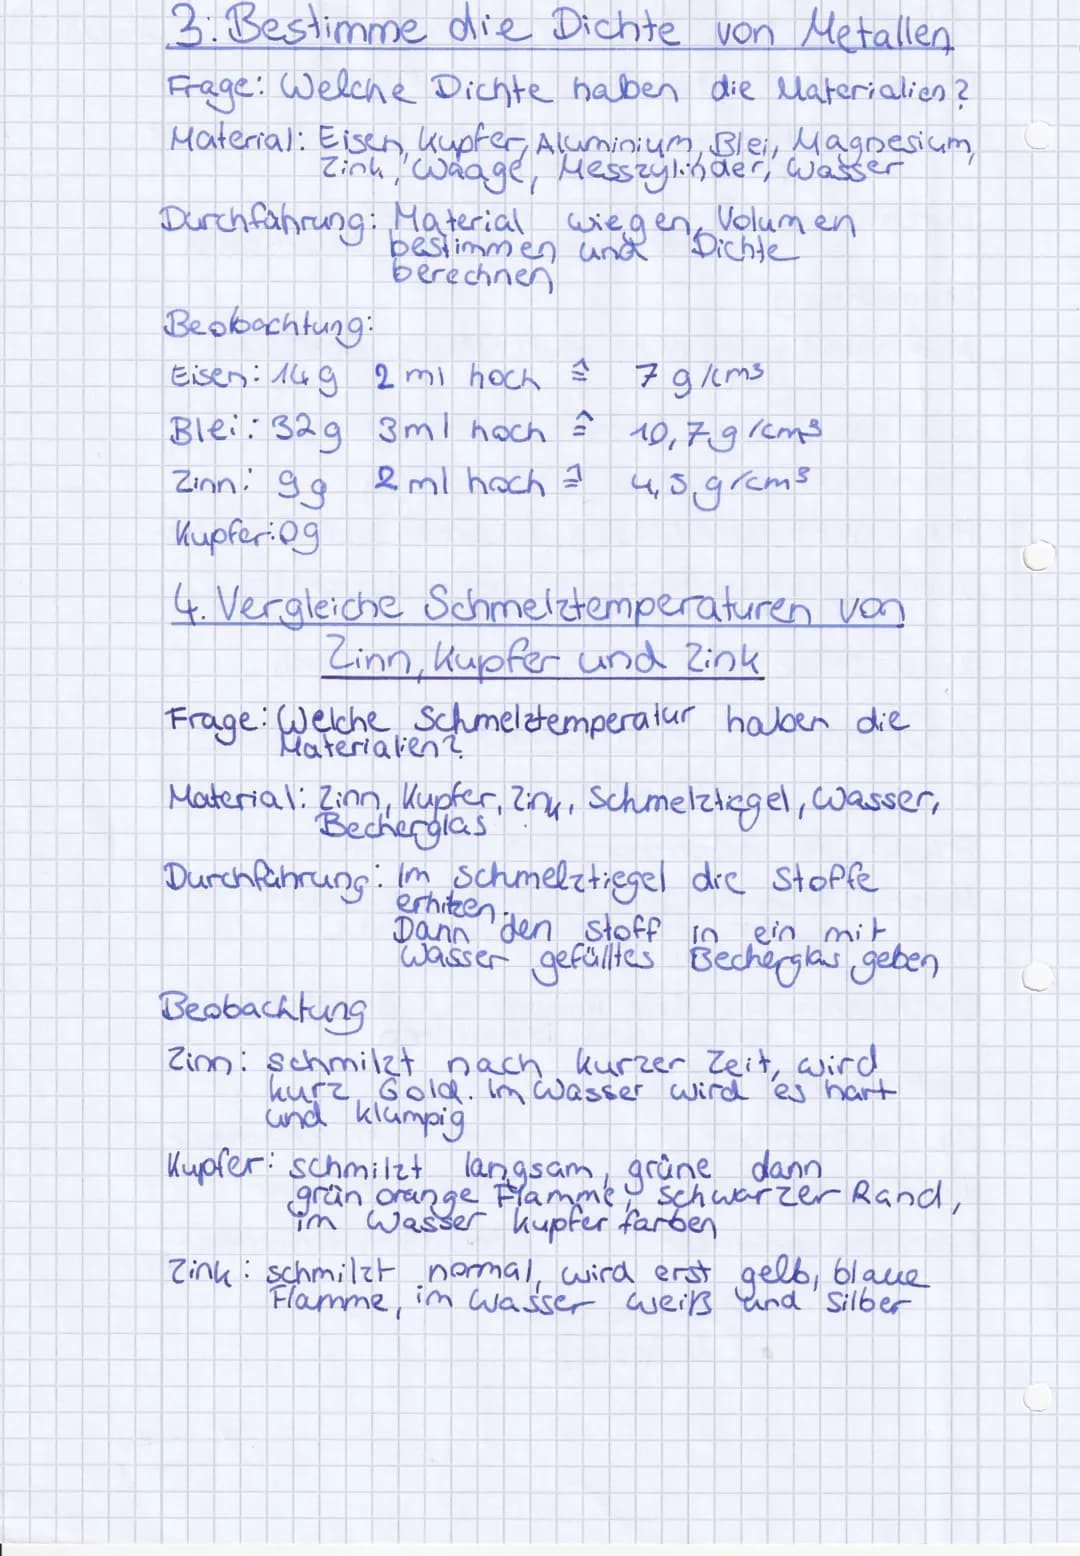 3. Bestimme die Dichte von Metallen
Frage: Welche Dichte haben die Materialien?
Material: Eisen, Kupfer, Aluminium, Blei, Magnesium,
Zink, Waage, Messzylinder, Wasser
Durchführung: Material wiegen, Volumen
bestimmen und Dichte
berechnen
Beobachtung:
Eisen: 14g 2 ml hoch ≙ 7 g/cm³
Blei: 32g 3ml hoch ≙ 10,7 g/cm³
Zinn: 9g 2 ml hoch ≙ 4,5 g/cm³
Kupfer: 0g
4. Vergleiche Schmelztemperaturen von
Zinn, Kupfer und Zink
Frage: Welche Schmelztemperatur haben die
Materialien?
Material: Zinn, Kupfer, Zink, Schmelztiegel, Wasser,
Becherglas
Durchführung: Im Schmelztiegel die Stoffe
erhitzen.
Dann den Stoff in ein mit
Wasser gefülltes Becherglas geben
Beobachtung
Zinn: schmilzt nach kurzer Zeit, wird
kurz Gold. Im Wasser wird es hart
und klumpig
Kupfer: schmilzt langsam, grüne dann
grün orange Flamme, schwarzer Rand,
im Wasser kupfer farben
Zink: schmilzt normal, wird erst gelb, blaue
Flamme, im Wasser weiß und silber